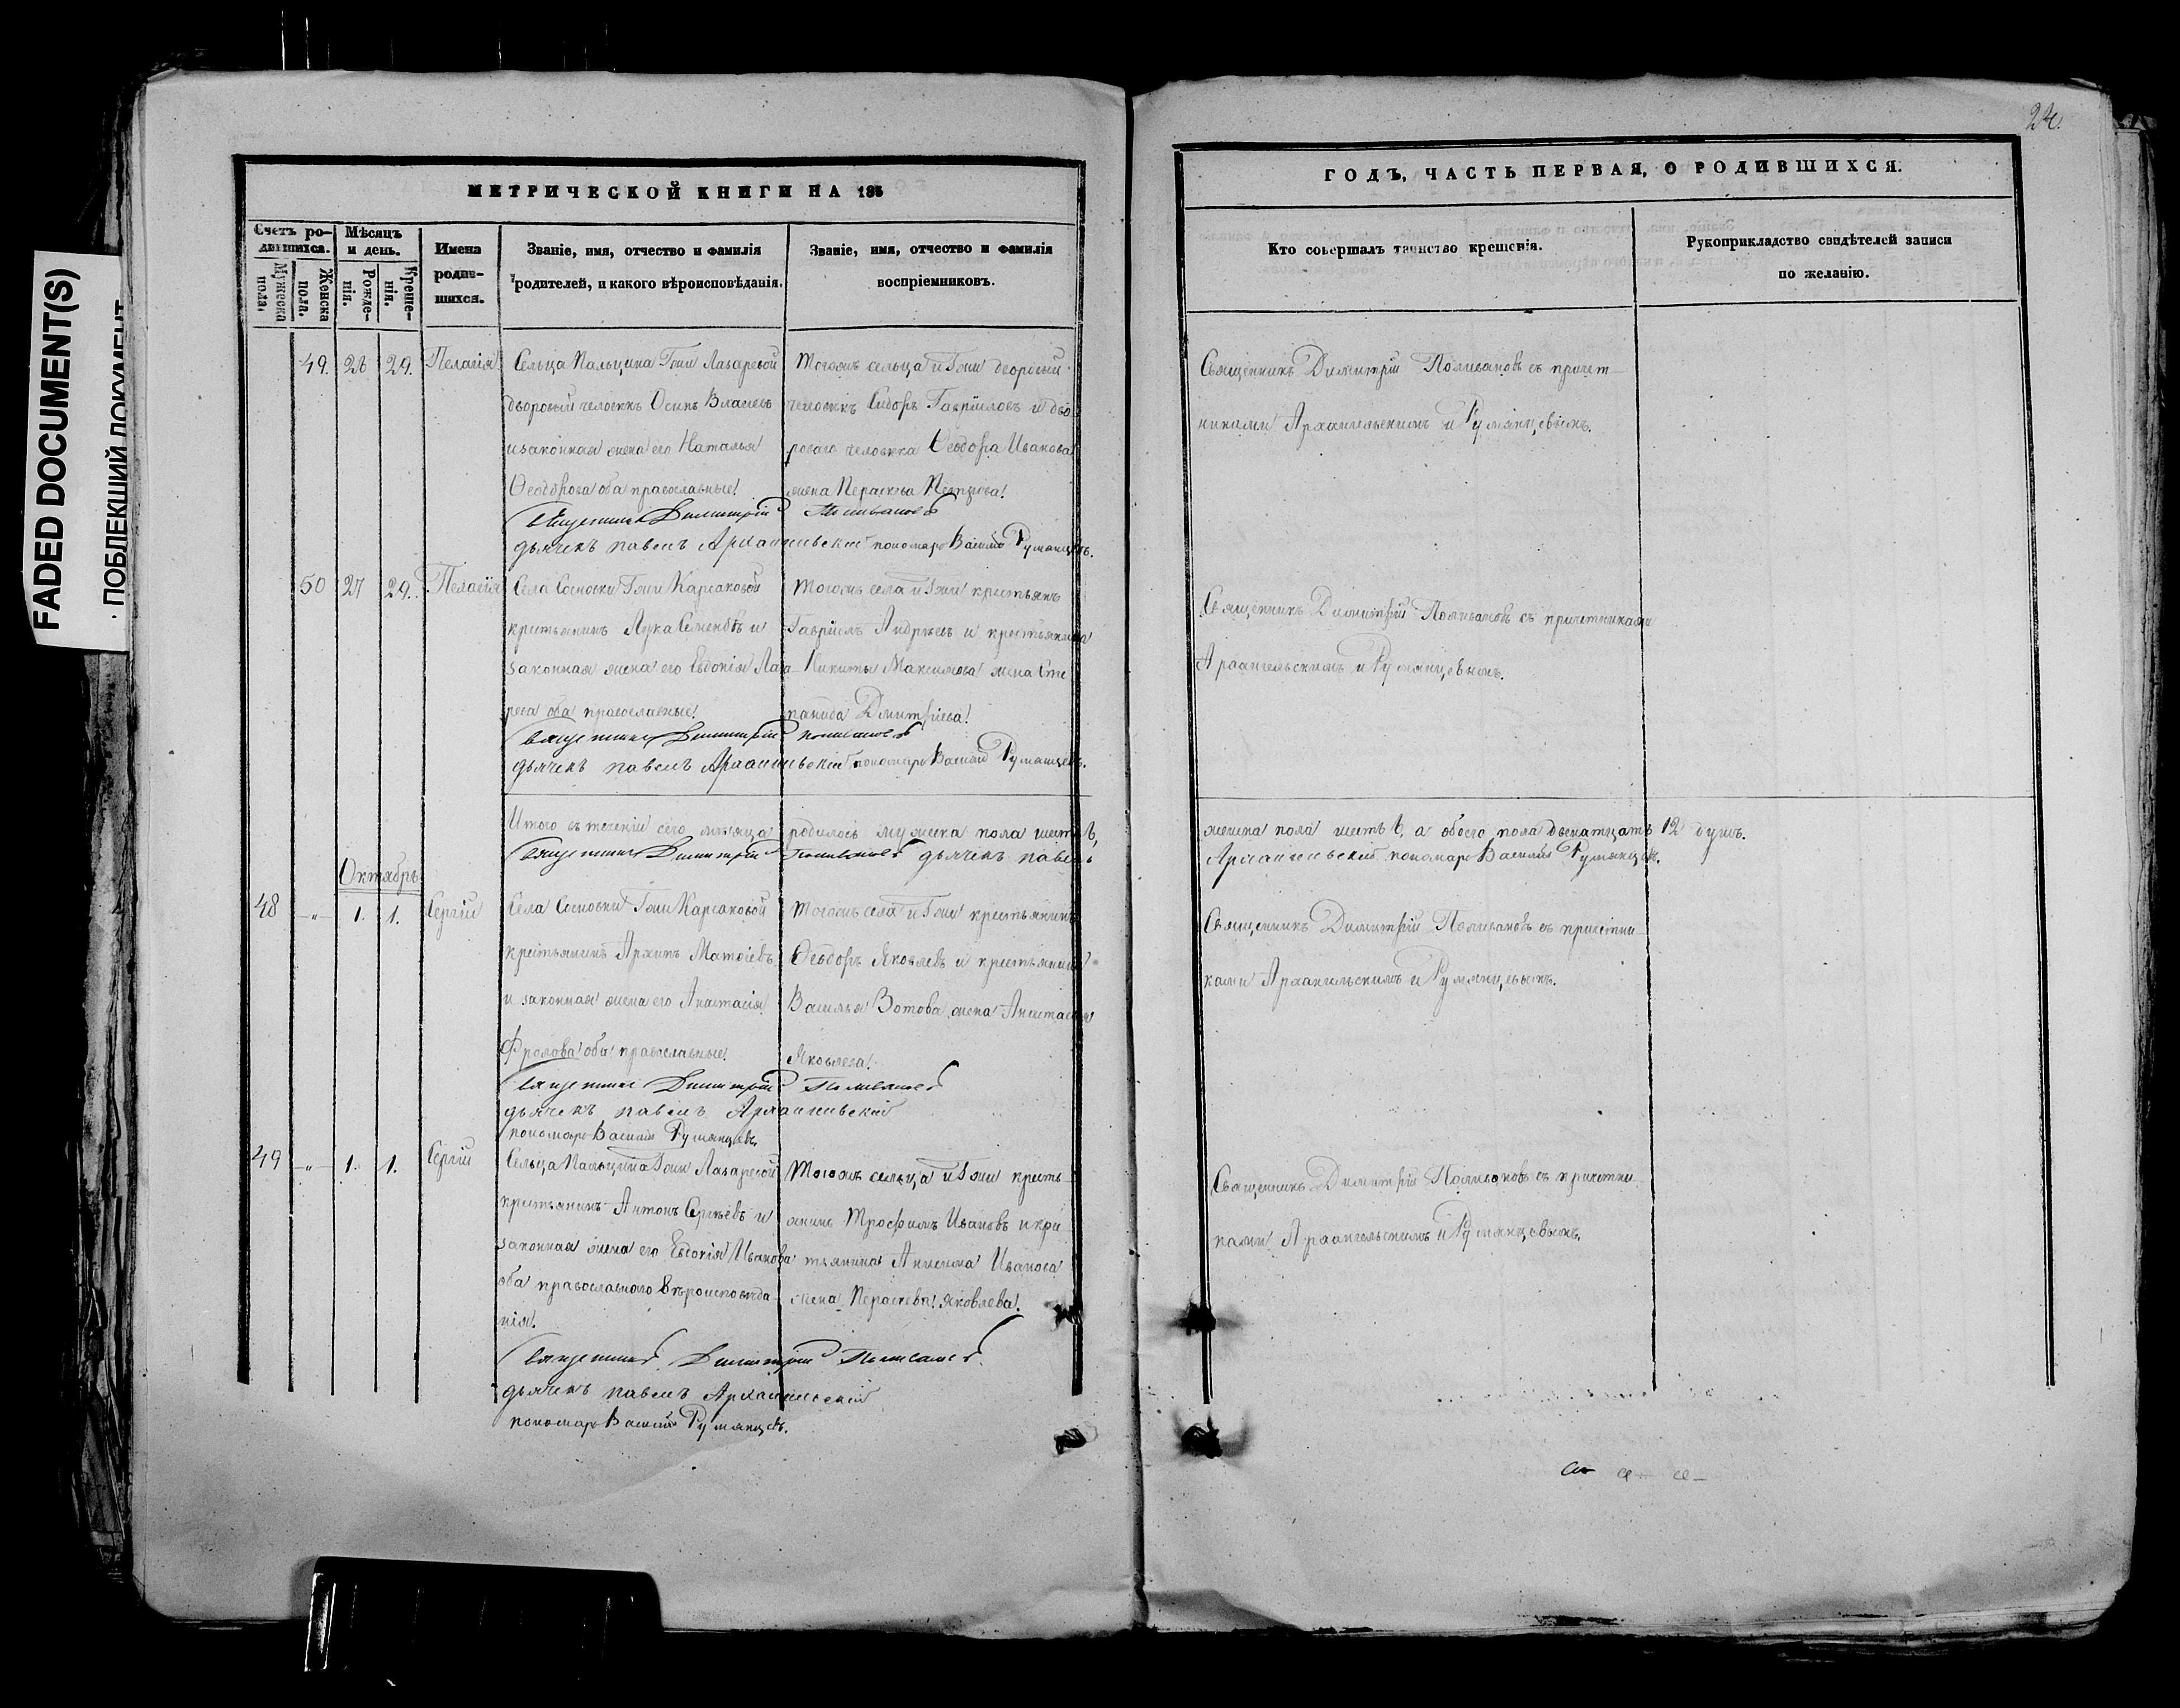 24.
FADED DOCUMENT(S)
ПОБЛЕКШИЙ ДОКУМЕНТ
МЕТРИЧЕСКОЙ КНИГИ НА 185
Счетъ ро-
дившихся.
Мужеска
пола.
Женска
пола.
Мѣсяцъ
и день.
Рожде-
нія.
Креще-
нія.
Имена
родив-
шихся.
Званіе, имя, отчество и фамилія
родителей, и какого вѣроисповѣданія.
Званіе, имя, отчество и фамилія
воспріемниковъ.
49. 28 29. Пелагія
Сельца Пальцина Гжи Лазаревой
дворовый человекъ Осипъ Власевъ
и законная жена его Наталья
Ѳеодорова оба православные.
Тогожъ сельца и Гжи дворовый
человекъ Сидоръ Гавріиловъ и дво
роваго человека Ѳеодора Иванова
жена Параскева Петрова.
Священникъ Димитрій Поливановъ
дьячекъ павелъ Архангельскій пономарь Василій Румянцевъ.
50 27 29. Пелагія
Села Сосновки Гжи Карсаковой
крестьянинъ Лука Семеновъ и
законная жена его Евдокія Лаза-
рева оба православные.
Тогожъ села и Гжи крестьянъ
Гавріилъ Андреевъ и крестьянина
Никиты Максимова жена Сте
панида Дмитріева.
Священникъ Димитрій поливановъ
дьячекъ павелъ Архангельскій пономарь Василій Румянцевъ.
Итого въ теченіи сего месяца родилось мужеска пола шесть 6,
Священникъ Димитрій Поливановъ дьячекъ павелъ
Октябрь
48 -"- 1. 1. Сергій
Села Сосновки Гжи Карсаковой
крестьянинъ Архипъ Матѳіевъ
и законная жена его Анастасія
Фролова оба православные.
Тогожъ села и Гжи крестьянинъ
Ѳеодоръ Яковлевъ и крестьянина
Василья Зотова жена Анастасія
Яковлева.
Священникъ Димитрій Поливановъ
дьячекъ павелъ Архангельскій
пономарь Василій Румянцевъ.
49 -"- 1. 1. Сергій
Сельца Пальцина Гжи Лазаревой
крестьянинъ Антонъ Сергѣевъ и
законная жена его Евдокія Иванова
оба православного вѣроисповѣда-
нія.
Тогожъ сельца и Гжи кресть-
янинъ Трофимъ Ивановъ и кре
стьянина Анисима Иванова
жена Параскева Яковлева.
Священникъ Димитрій Поливановъ
дьячекъ павелъ Архангельскій
пономарь Василій Румянцевъ.
ГОДЪ, ЧАСТЬ ПЕРВАЯ, О РОДИВШИХСЯ.
Кто совершалъ таинство крещенія.
Рукоприкладство свидѣтелей записи
по желанію.
Священникъ Димитрій Поливановъ съ причет-
никами Архангельскимъ и Румянцевымъ.
Священникъ Димитрій Поливановъ съ причетниками
Архангельскимъ и Румянцевымъ.
женска пола шесть 6, а обоего пола двенатцать 12 душъ.
Архангельскій пономарь Василій Румянцевъ.
Священникъ Димитрій Поливановъ съ причетни
ками Архангельскимъ и Румянцевымъ.
Священникъ Димитрій Поливановъ съ причетни
ками Архангельскимъ и Румянцевымъ.